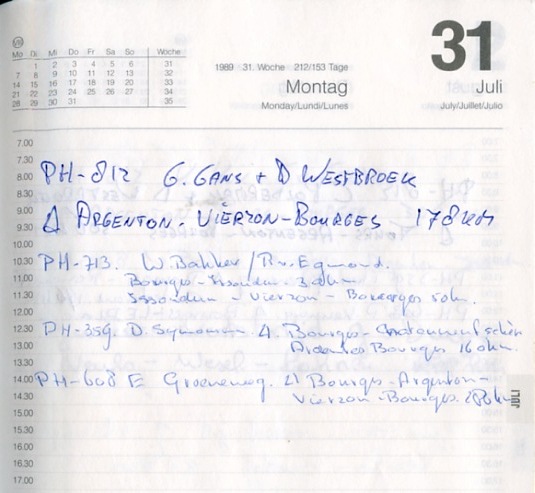 VIII
Mo Di Mi Do Fr Sa So Woche
1 2 3 4 5 6 31
7 8 9 10 11 12 13 32
14 15 16 17 18 19 20 33
21 22 23 24 25 26 27 34
28 29 30 31 35
1989 31. Woche 212/153 Tage
Montag
Monday/Lundi/Lunes
31
Juli
July/Juillet/Julio
7.00
7.30
8.00 PH-812 G. GANS + D WESTBROEK
8.30
9.00 Δ ARGENTON-VIERZON-BOURGES 178km
9.30
10.00
10.30 PH-713. W. Bakker / R. v. Egmond.
11.00 Bourges-Issoudun
11.30 Issoudun - Vierzon - Bourges
12.00
12.30 PH-359. D. Bourges-
13.00 Bourges
13.30
14.00 PH-608 E Groeneweg. Bourges-Argenton-
14.30 Vierzon-Bourges.
15.00
15.30
16.00
16.30
17.00
JULI